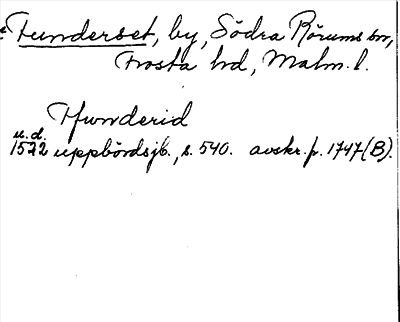 Funderset, by, Södra Rörums sn,
Frosta hd, Malm. l.
Ffunderid
u.d.
1522 uppbördsjb., s. 540. avskr. fr. 1747 (B).